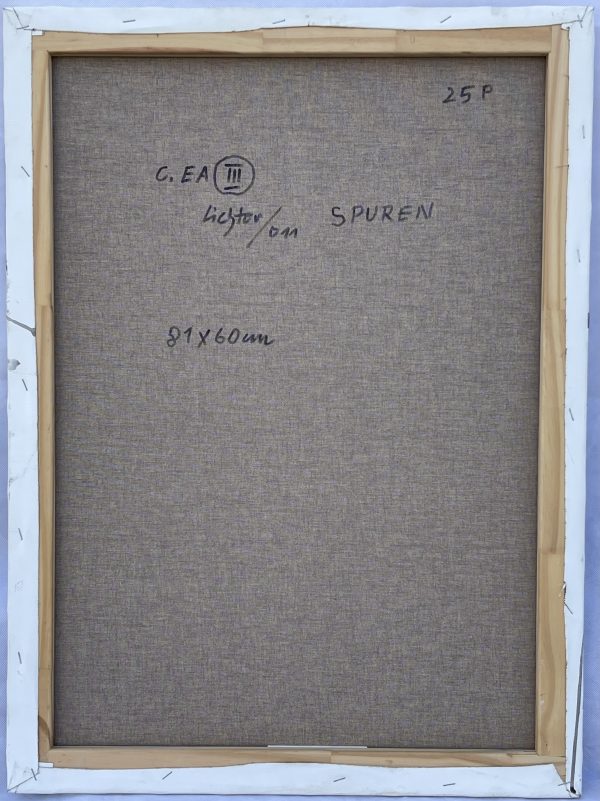 25 P
C. EA III
Lichter/011 SPUREN
81 X 60 cm